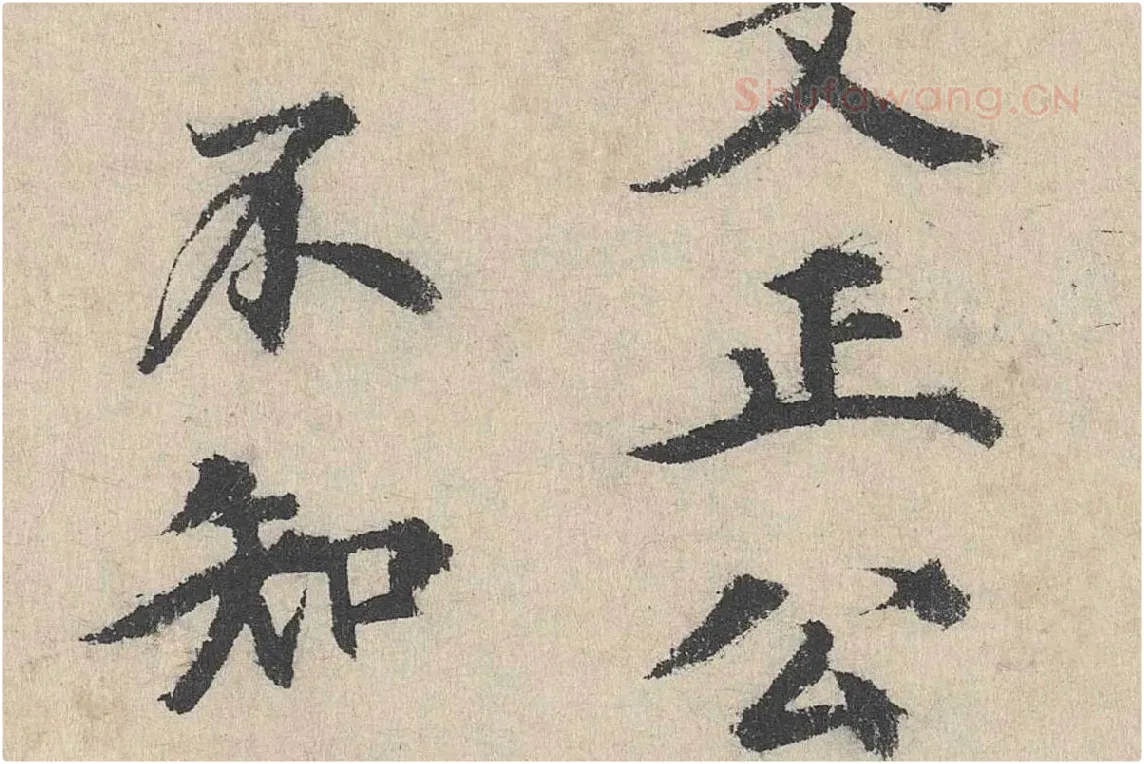 文正公
不知
Shufawang.CN